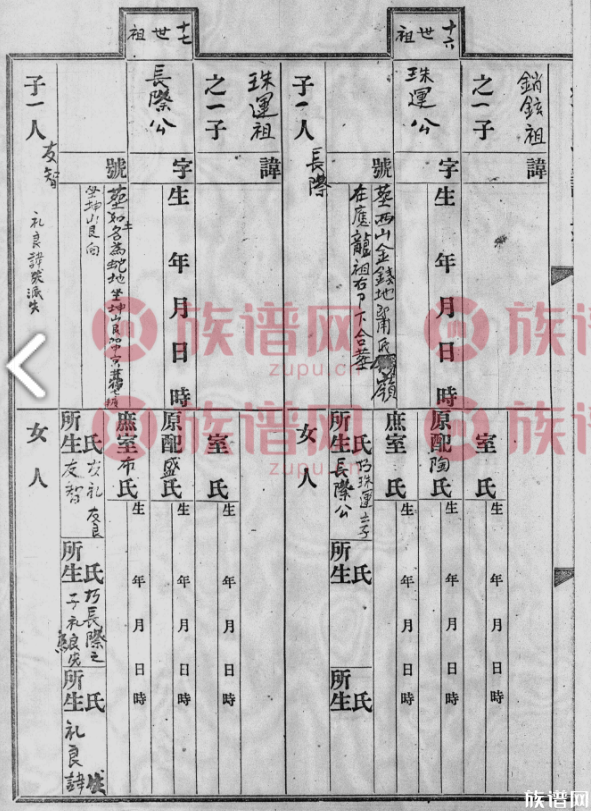 十六世祖
銷鉉祖
之一子
珠運公
諱
字
號
生 年 月 日 時
塟西山金錢地
在應龍祖右
下合塟
子一人
長際
室氏
生 年 月 日 時
原配陶氏
生 年 月 日 時
庶室 氏
生 年 月 日 時
氏
所生
長際公
氏
所生
氏
所生
女 人
十七世祖
珠運祖
之一子
長際公
諱
字
號
生 年 月 日 時
坐坤山艮向
子一人
友智
礼良諱
室氏
生 年 月 日 時
原配盛氏
生 年 月 日 時
庶室布氏
生 年 月 日 時
氏
友礼 友良
所生
友智
氏
長際之
所生
子礼良
氏
所生
礼良諱
女 人
族谱网
zupu.cn
族谱网
zupu.cn
族谱网
族谱网
族谱网